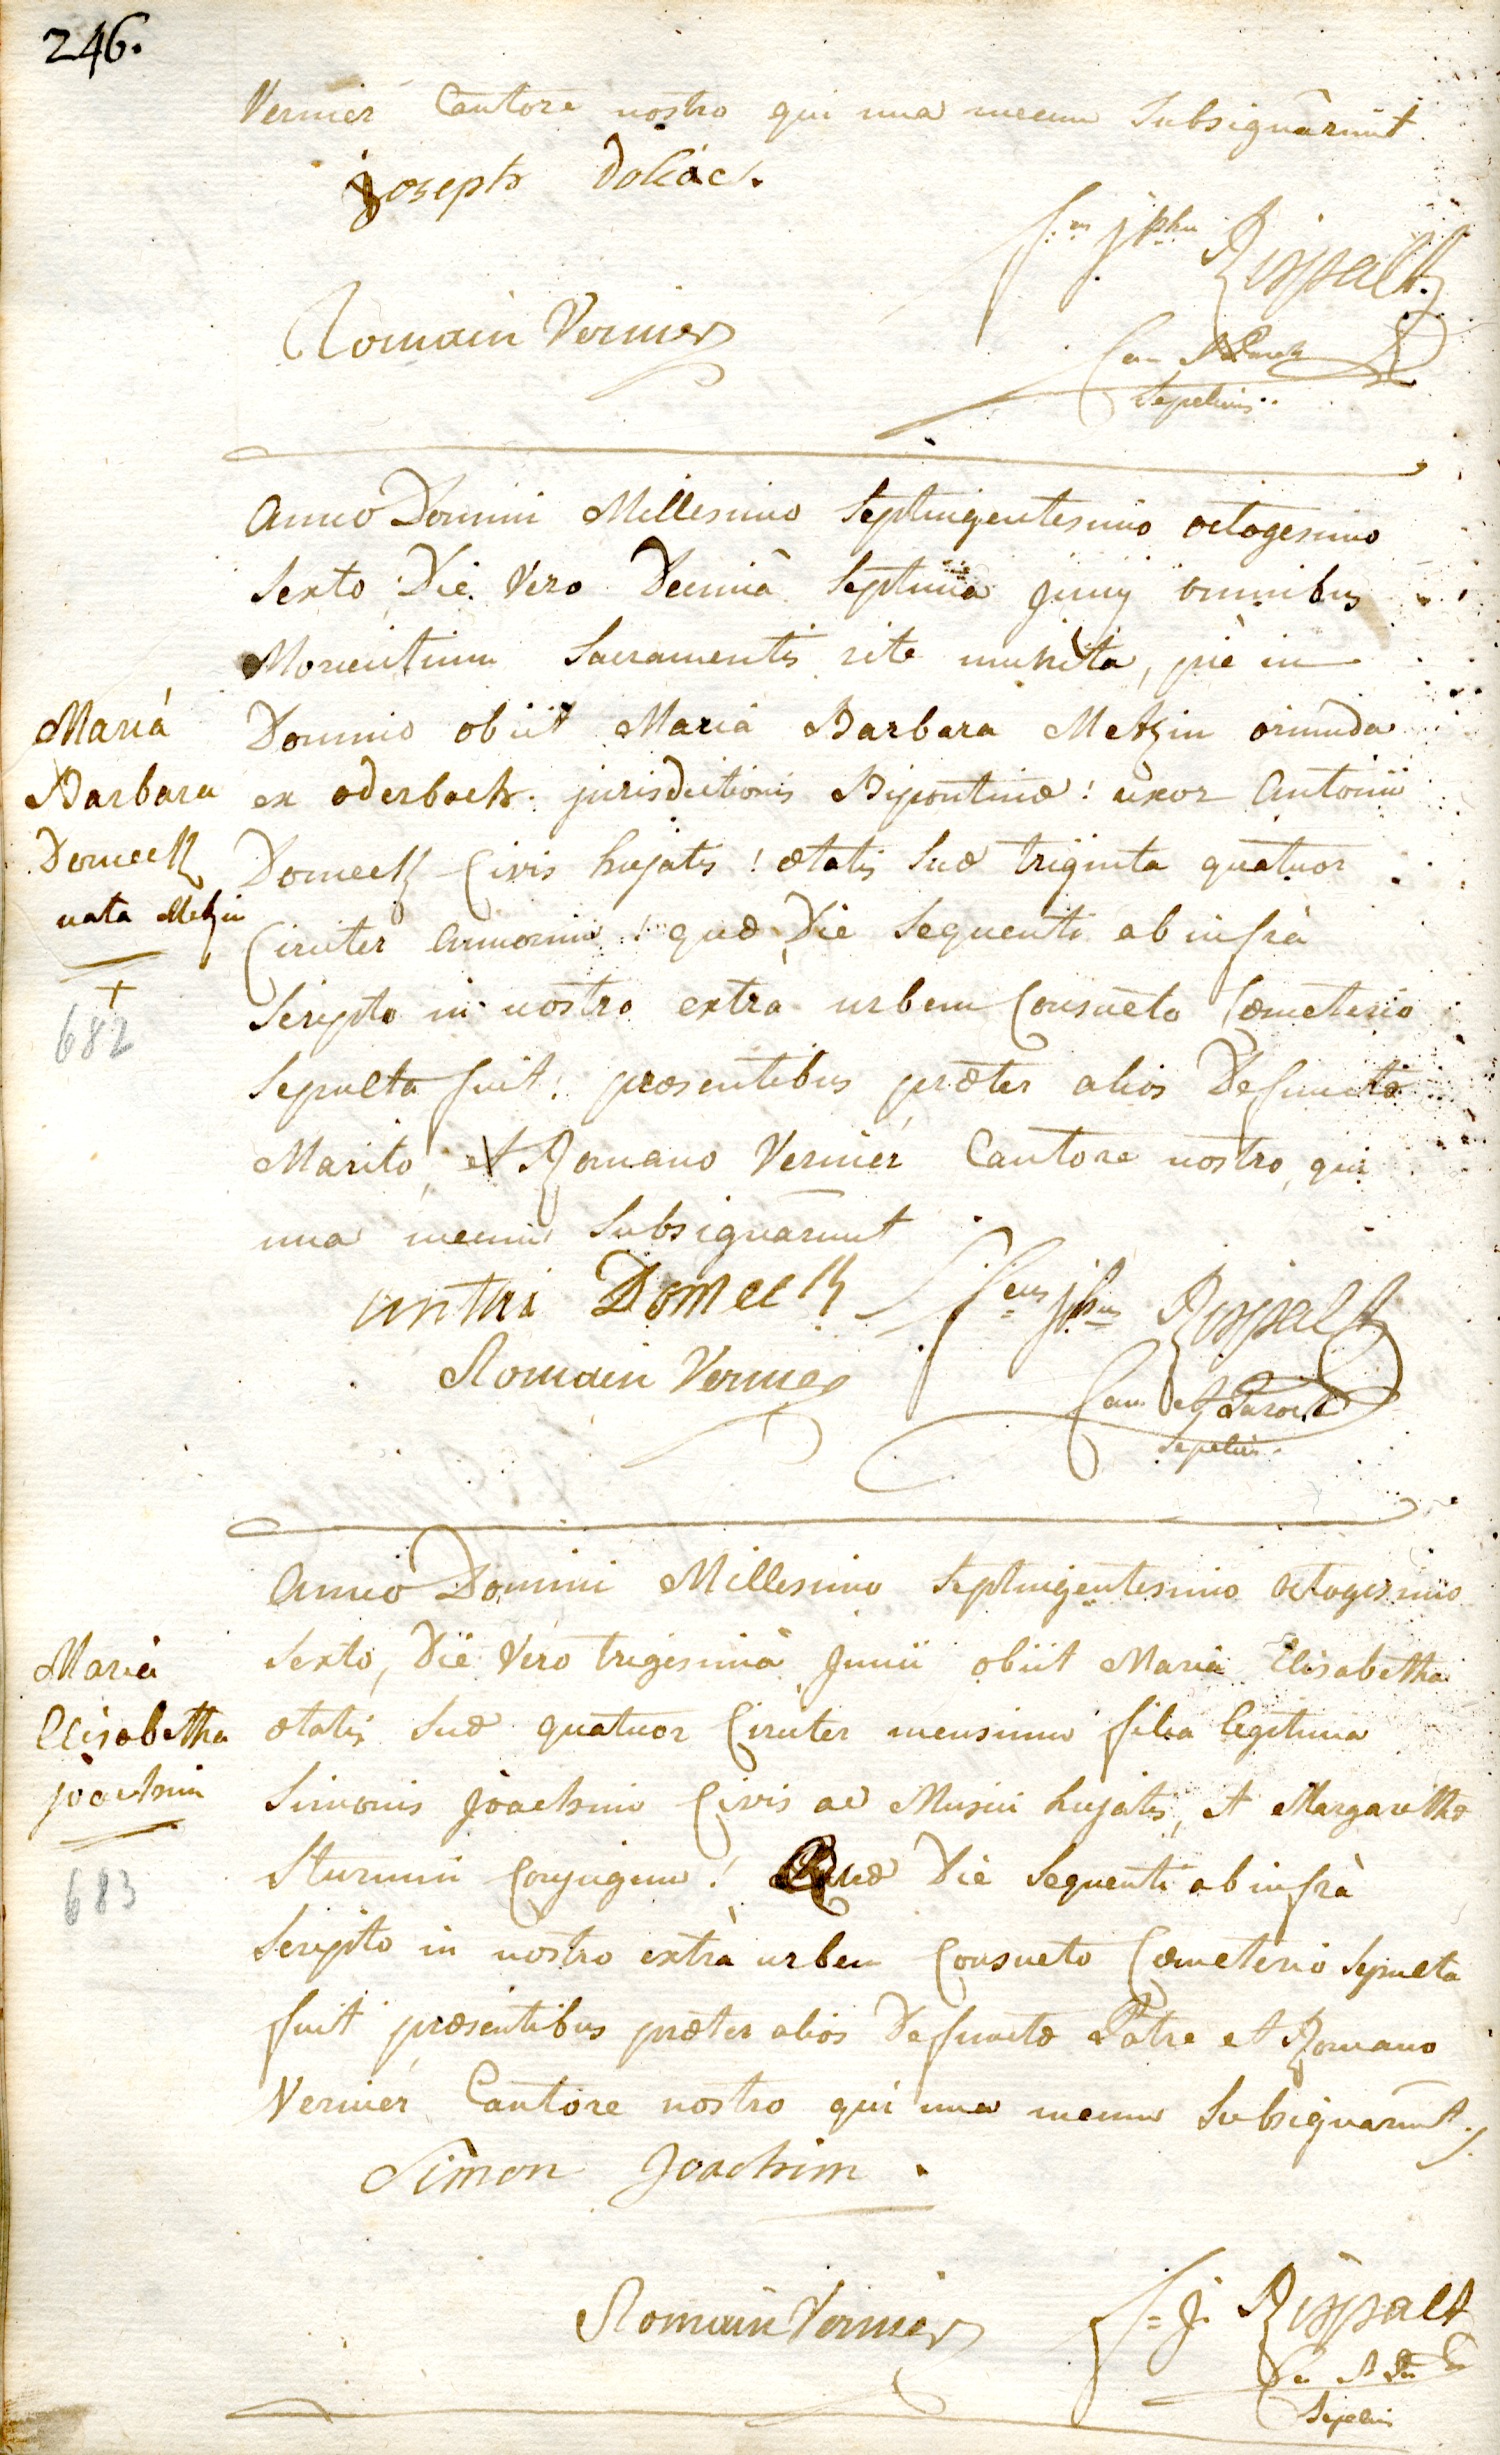 246.
Vernier Cantore nostro qui una mecum Subsignârunt
joseph Doliac.
Romain Vernier
Rippalt
Can. et Paroch
Sepeliens.
Anno Domini Millesimo Septingentesimo octogesimo
Sexto Die Vero Decimâ Septimâ Junij omnibus
Morientium Sacramentis rite munita, piè in
Domino obiit Maria Barbara Metzin oriunda
ex oderbach jurisdictionis Bipontinæ! uxor Antonii
Domeck Civis hujatis! ætatis suæ triginta quatuor
Circiter Annorum! quæ Die Sequenti ab infrà
Scripto in nostro extra urbem Consueto Cœmeterio
Sepulta fuit! præsentibus præter alios Defunctæ
Marito, et Romano Vernier Cantore nostro, qui
una mecum Subsignarunt
Maria
Barbara
Domeck
nata Metzin
+
682
antni Domeck
Rippalt
Romain Vernier
Can. et Paroch
Sepeliens.
Anno Domini Millesimo Septingentesimo octogesimo
Sexto, Die Vero trigesimâ Junii obiit Maria Elisabetha
ætatis suæ quatuor Circiter mensium filia legitima
Simonis Joachim Civis ac Musici hujatis, et Margarethæ
Sturmin Conjugum! Quæ Die Sequenti ab infrà
Scripto in nostro extrà urbem Consueto Cœmeterio Sepulta
fuit præsentibus præter alios Defunctæ Patre et Romano
Vernier Cantore nostro qui una mecum Subsignarunt
Maria
Elisabetha
joachim
683
Simon Joachim.
Romain Vernier
F. J. Rippalt
Sepeliens